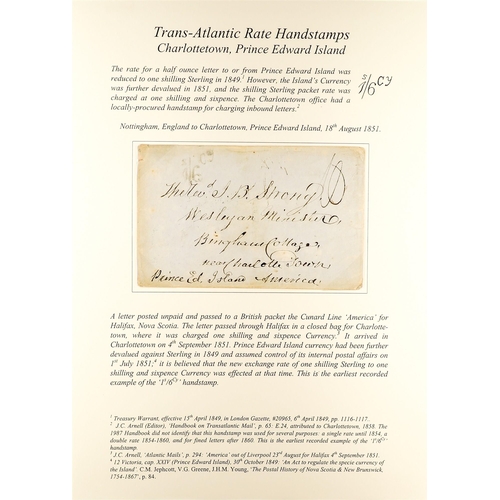 Trans-Atlantic Rate Handstamps
Charlottetown, Prince Edward Island
The rate for a half ounce letter to or from Prince Edward Island was
reduced to one shilling Sterling in 1849.¹ However, the Island's Currency
was further devalued in 1851, and the shilling Sterling packet rate was
charged at one shilling and sixpence. The Charlottetown office had a
locally-procured handstamp for charging inbound letters.²
S1/6 Cy
Nottingham, England to Charlottetown, Prince Edward Island, 18th August 1851.
The Revd J. B. Strong
Wesleyan Minister,
Bingham Cottage,
near Charlotte Town,
Prince Ed. Island America,
A letter posted unpaid and passed to a British packet the Cunard Line 'America' for
Halifax, Nova Scotia. The letter passed through Halifax in a closed bag for Charlotte-
town, where it was charged one shilling and sixpence Currency.³ It arrived in
Charlottetown on 4th September 1851. Prince Edward Island currency had been further
devalued against Sterling in 1849 and assumed control of its internal postal affairs on
1st July 1851;⁴ it is believed that the new exchange rate of one shilling Sterling to one
shilling and sixpence Currency was effected at that time. This is the earliest recorded
example of the '1s/6Cy' handstamp.
¹ Treasury Warrant, effective 15th April 1849, in London Gazette, #20965, 6th April 1849, pp. 1116-1117.
² J.C. Arnell (Editor), 'Handbook on Transatlantic Mail', p. 65: E.24, attributed to Charlottetown, 1858. The
1987 Handbook did not identify that this handstamp was used for several purposes: a single rate until 1854, a
double rate 1854-1860, and for fined letters after 1860. This is the earliest recorded example of the '1s/6Cy'
handstamp.
³ J.C. Arnell, 'Atlantic Mails', p. 294: 'America' out of Liverpool 23rd August for Halifax 4th September 1851.
⁴ 12 Victoria, cap. XXIV (Prince Edward Island), 30th October 1849: 'An Act to regulate the specie currency of
the Island'. C.M. Jephcott, V.G. Greene, J.H.M. Young, 'The Postal History of Nova Scotia & New Brunswick.
1754-1867', p. 84.